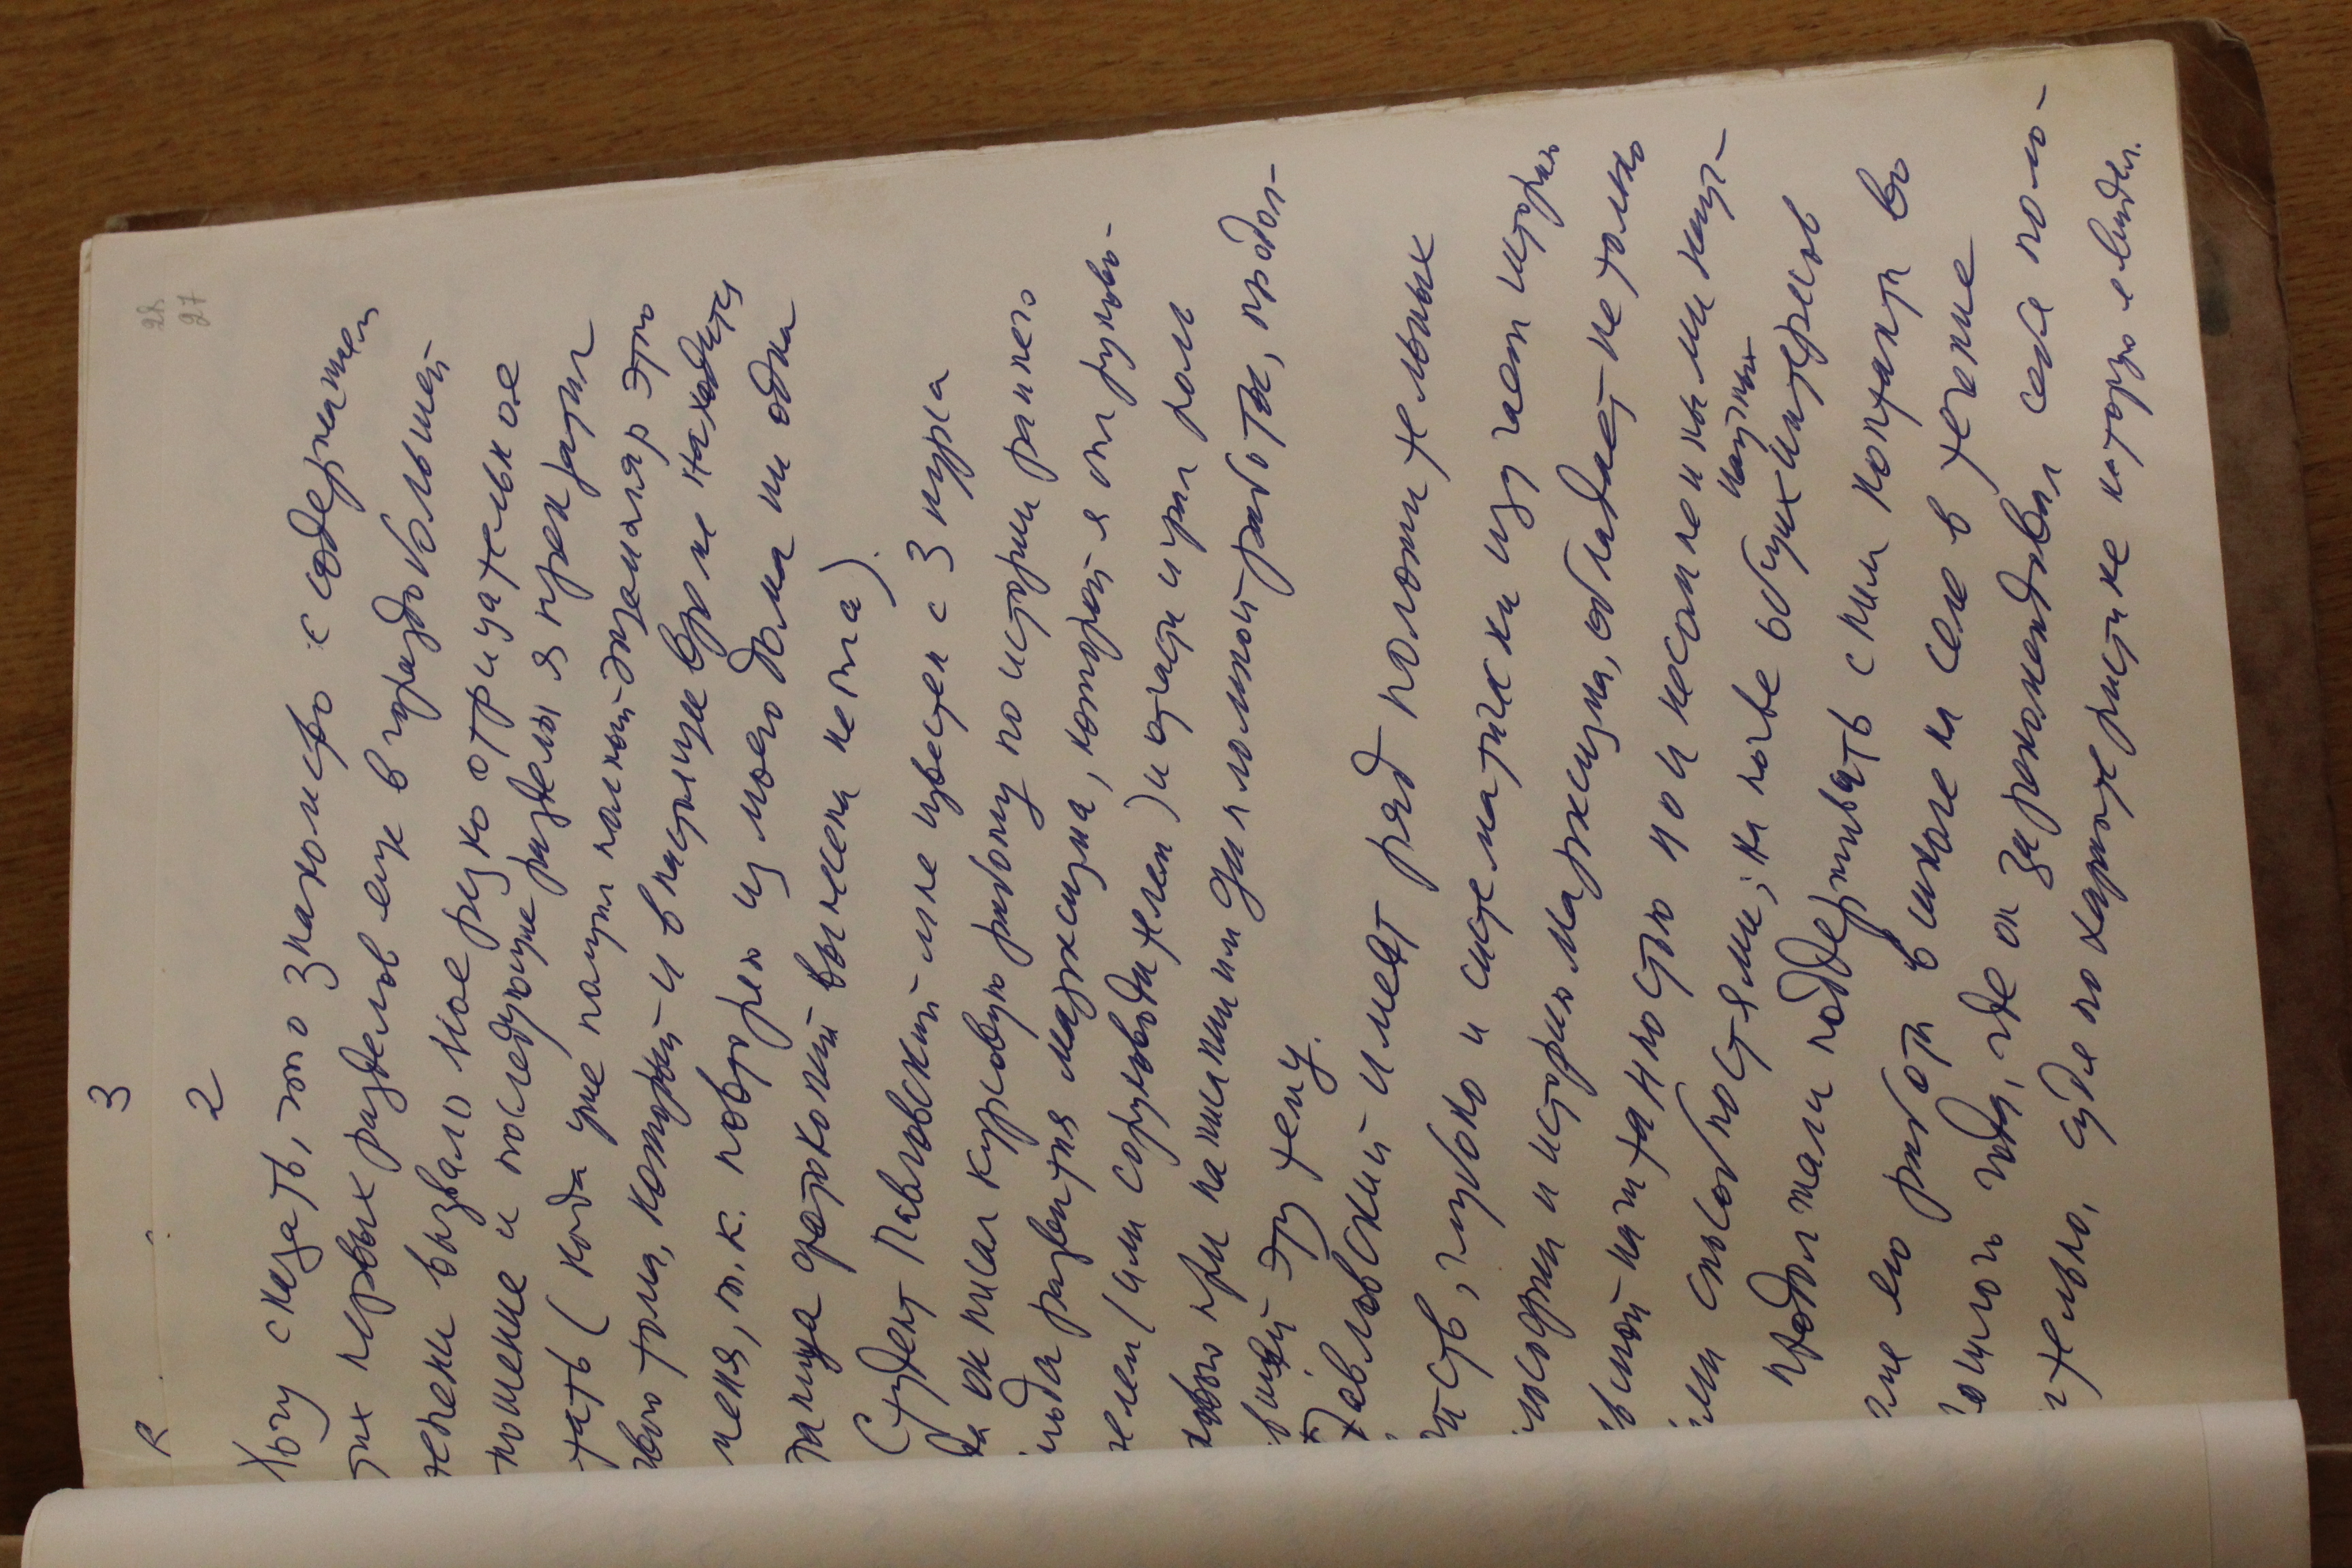 3
R
28
27
2
Хочу сказать, что знакомство с содержанием
тих первых разделов еще в гораздо большей
тепени вызвало мое резко отрицательное
ношение и последующие разделы я прекратил
тать (когда уже получил полный экземпляр этого
вого тома, который и в настоящее время находится
меня, т.к. повторяю из моего дома ни одна
траница фотокопий вынесена не была).
Студент Павловский мне известен с 3 курса
да он писал курсовую работу по истории раннего
иода развития марксизма, которой я был руково-
телем (или соруководителем) и отчасти играл роль
кового при написании им дипломной работы, продол-
вшей эту тему.
Павловский имеет ряд положительных
йств, глубоко и систематически изучает историю
лософии и историю марксизма, обладает не только
ьшой начитанностью но и несомненными науч-
ыми способностями; на почве общих научных интересов
продолжали поддерживать с ним контакты во
емя его работы в школе на селе в течение
ошлого года, где он зарекомендовал себя поло-
ительно, судя по характеристике которую я видел.